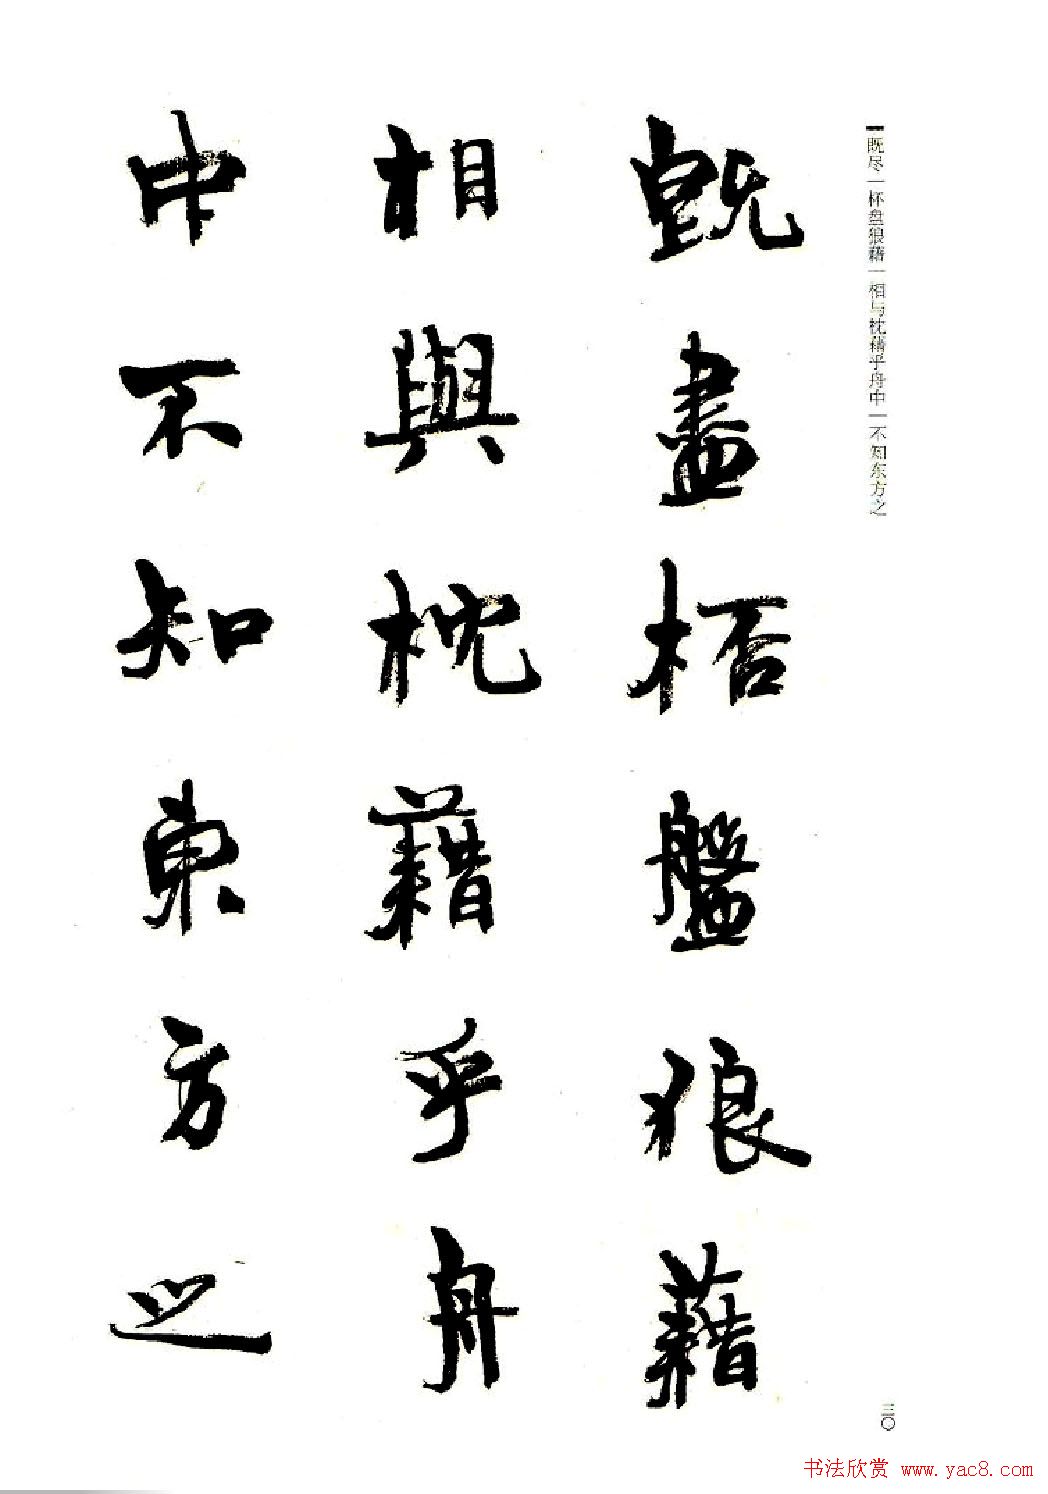 既尽一杯盘狼藉一相与枕藉乎舟中一不知东方之
既盡桮盤狼藉
相與枕藉乎舟
中不知東方之
三〇
书法欣赏 www.yac8.com